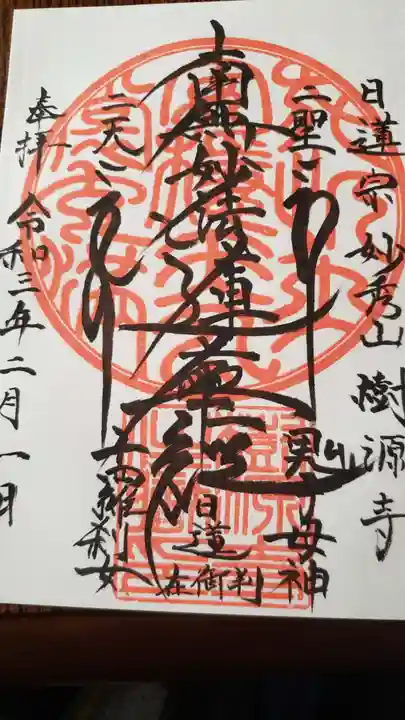 日蓮宗妙秀山樹源寺
二聖
鬼子母神
南無妙法蓮華経
日蓮
在御判
二天
十羅刹女
奉拝
令和三年二月一日